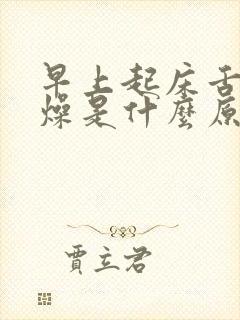 早上起床舌
燥是什麼原
賈立君